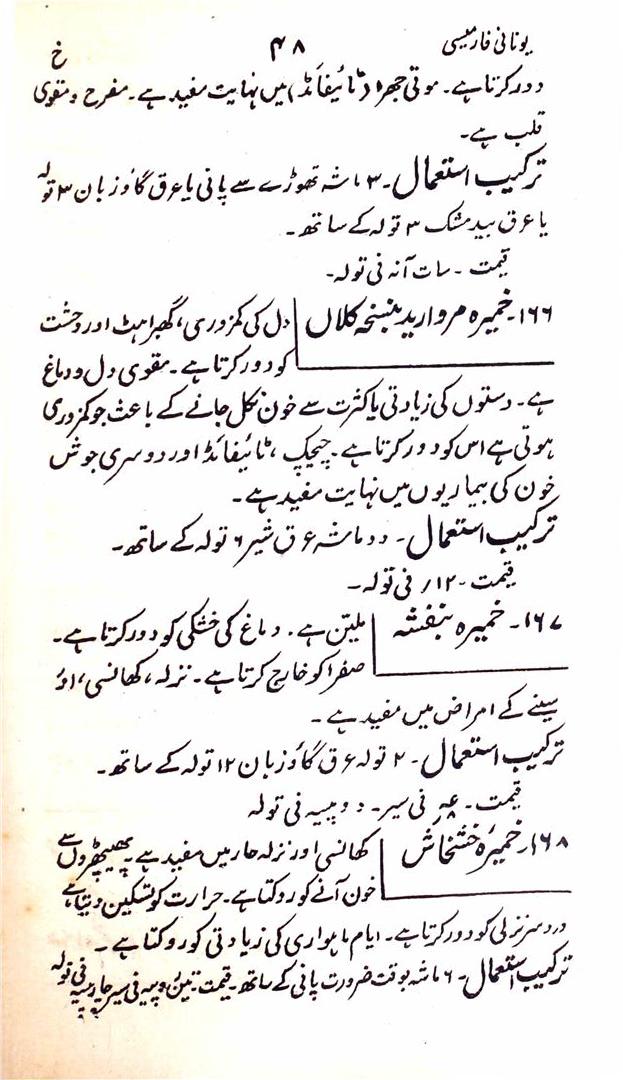 یونانی فارمیسی ۴۸ خ
دور کرتا ہے۔ موتی جھرا (ٹائیفائڈ) میں نہایت مفید ہے۔ مفرح و مقوی
قلب ہے۔
ترکیب استعمال۔ ۳ ماشہ تھوڑے سے پانی یا عرق گاؤزبان ۳ تولہ
یا عرق بید مشک ۳ تولہ کے ساتھ۔
قیمت۔ سات آنہ فی تولہ۔
۱۶۶۔ خمیرہ مروارید بنسخہ کلاں دل کی کمزوری، گھبراہٹ اور وحشت
کو دور کرتا ہے۔ مقوی دل و دماغ
ہے۔ دستوں کی زیادتی یا کثرت سے خون نکل جانے کے باعث جو کمزوری
ہوتی ہے اس کو دور کرتا ہے۔ چیچک، ٹائیفائڈ اور دوسری جوش
خون کی بیماریوں میں نہایت مفید ہے۔
ترکیب استعمال۔ دو ماشہ عرق شیر ۶ تولہ کے ساتھ۔
قیمت۔ ۱۲؍ فی تولہ۔
۱۶۷۔ خمیرہ بنفشہ ملیّن ہے۔ دماغ کی خشکی کو دور کرتا ہے۔
صفرا کو خارج کرتا ہے۔ نزلہ، کھانسی، اور
سینے کے امراض میں مفید ہے۔
ترکیب استعمال۔ ۲ تولہ عرق گاؤزبان ۱۲ تولہ کے ساتھ۔
قیمت۔ فی سیر۔ دو پیسہ فی تولہ
۱۶۸۔ خمیرۂ خشخاش کھانسی اور نزلہ حار میں مفید ہے۔ پھیپھڑوں سے
خون آنے کو روکتا ہے۔ حرارت کو تسکین دیتا ہے
درد سر نزلی کو دور کرتا ہے۔ ایام ماہواری کی زیادتی کو روکتا ہے۔
ترکیب استعمال۔ ۶ ماشہ بوقت ضرورت پانی کے ساتھ۔ قیمت تین روپیہ فی سیر چار پیسہ فی تولہ